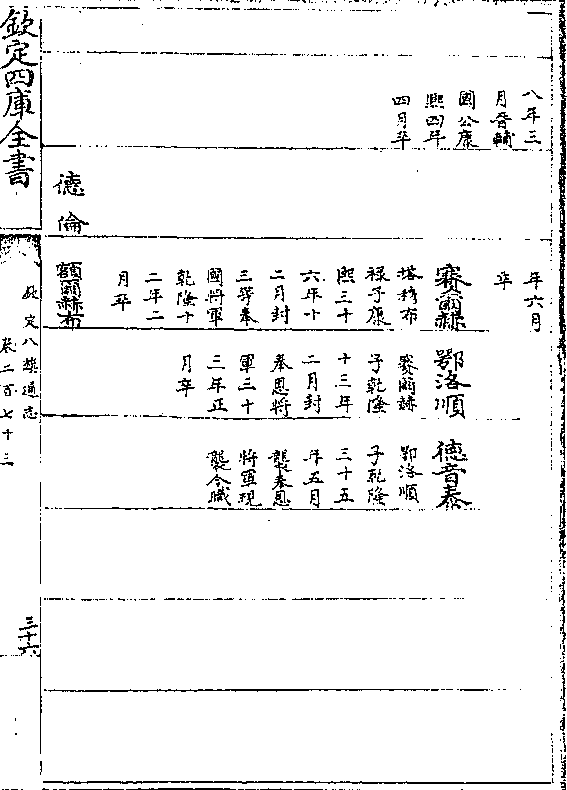 八年三
月晉輔
國公康
熙四年
四月卒
德倫
年六月
卒
賽爾赫
塔穆布
祿子康
熙三十
六年十
二月封
三等奉
國將軍
乾隆十
二年二
月卒
額爾赫布
鄂洛順
賽爾赫
子乾隆
十三年
二月封
奉恩將
軍三十
三年正
月卒
德音泰
鄂洛順
子乾隆
三十五
年五月
襲奉恩
將軍現
襲今職
欽定四庫全書
欽定八旗通志
卷二百七十三
三十六